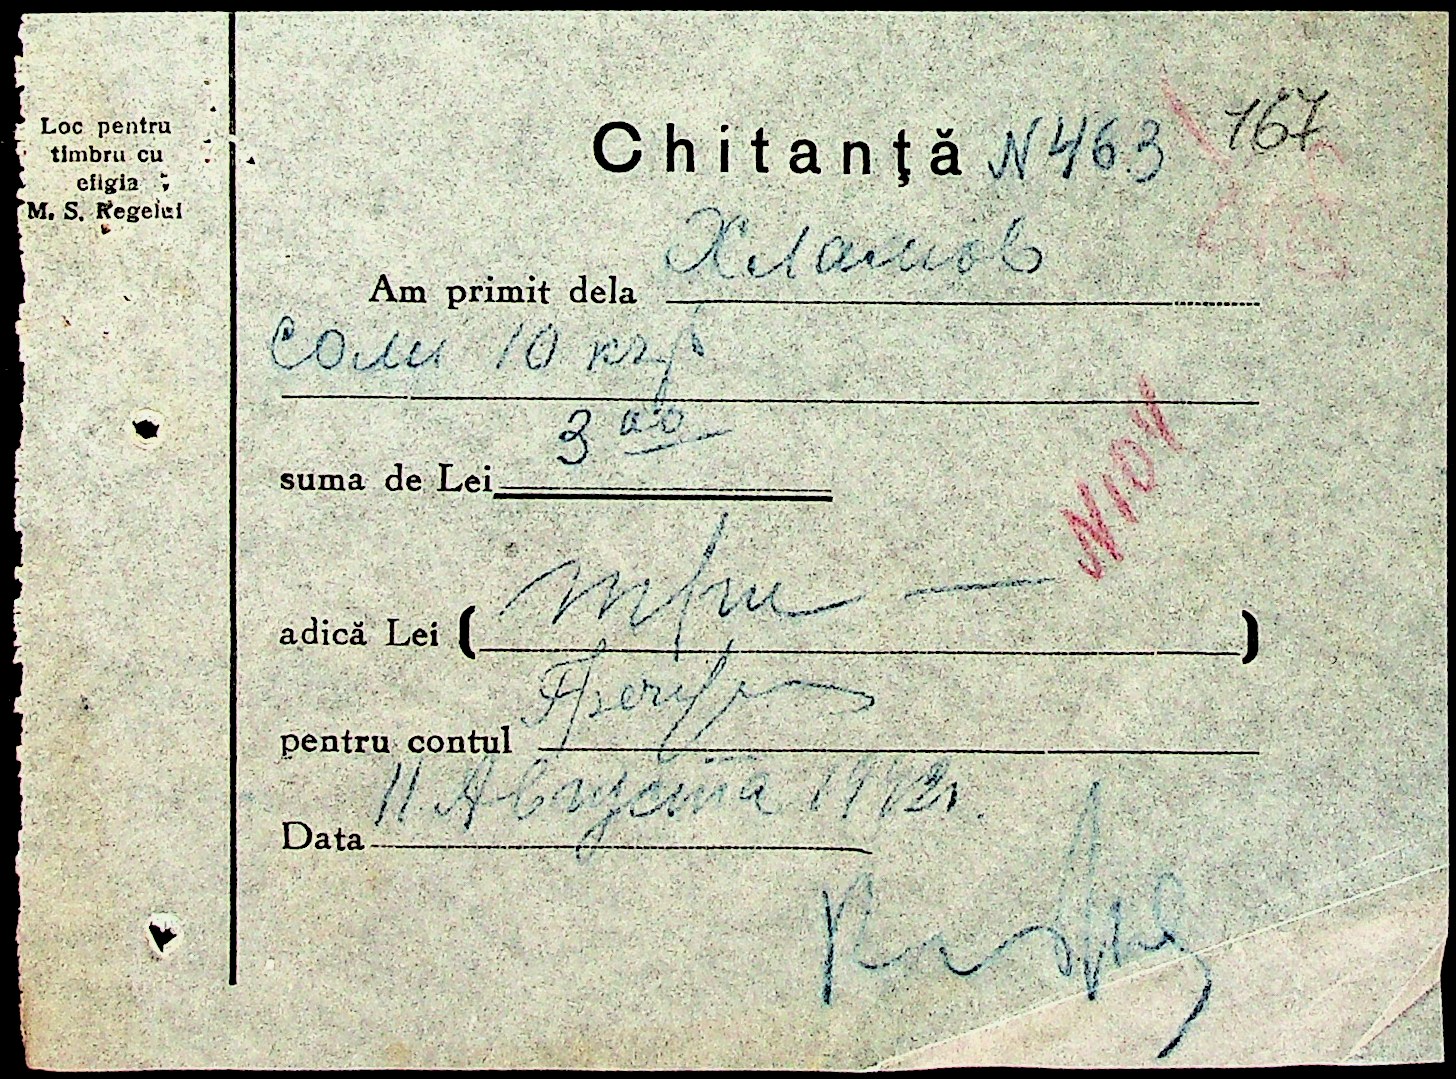 Loc pentru
timbru cu
efigia
M. S. Regelui
Chitanţă N 463
167
Am primit dela Хламов
соли 10 кгр
suma de Lei 3
N104
adică Lei ( три — )
pentru contul
Data 11 Августа 1942г.